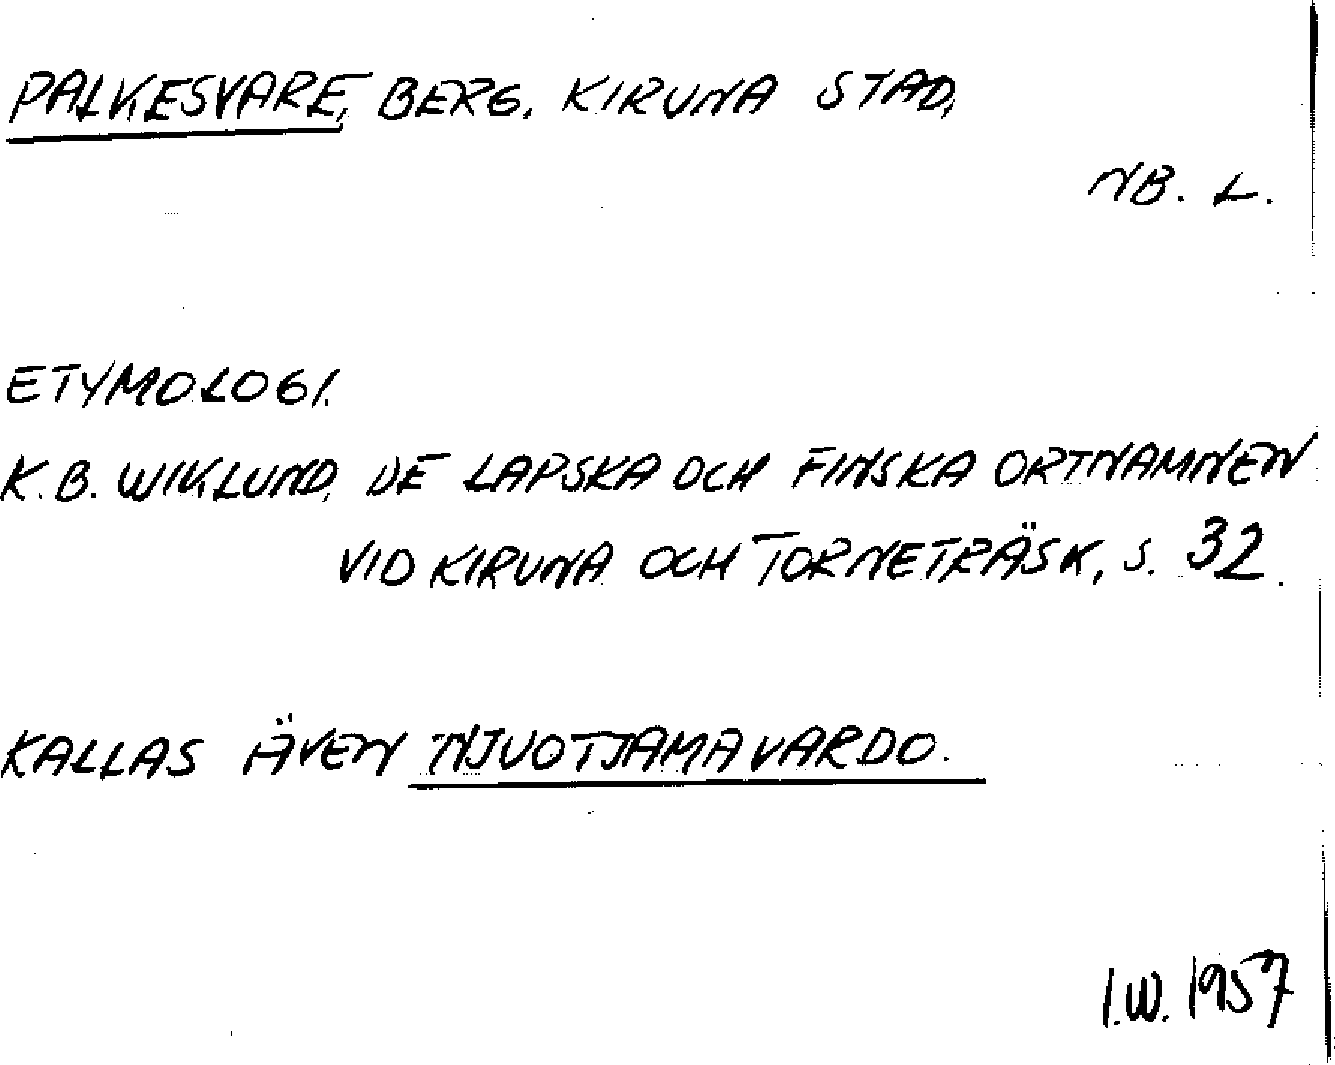 PALKESVARE, BERG. KIRUNA STAD,
NB. L.
ETYMOLOGI.
K.B. WIKLUND, DE LAPSKA OCH FINSKA ORTNAMNEN
VID KIRUNA OCH TORNETRÄSK, S. 32.
KALLAS ÄVEN TNJUOTJAMAVARDO.
I.W. 1957